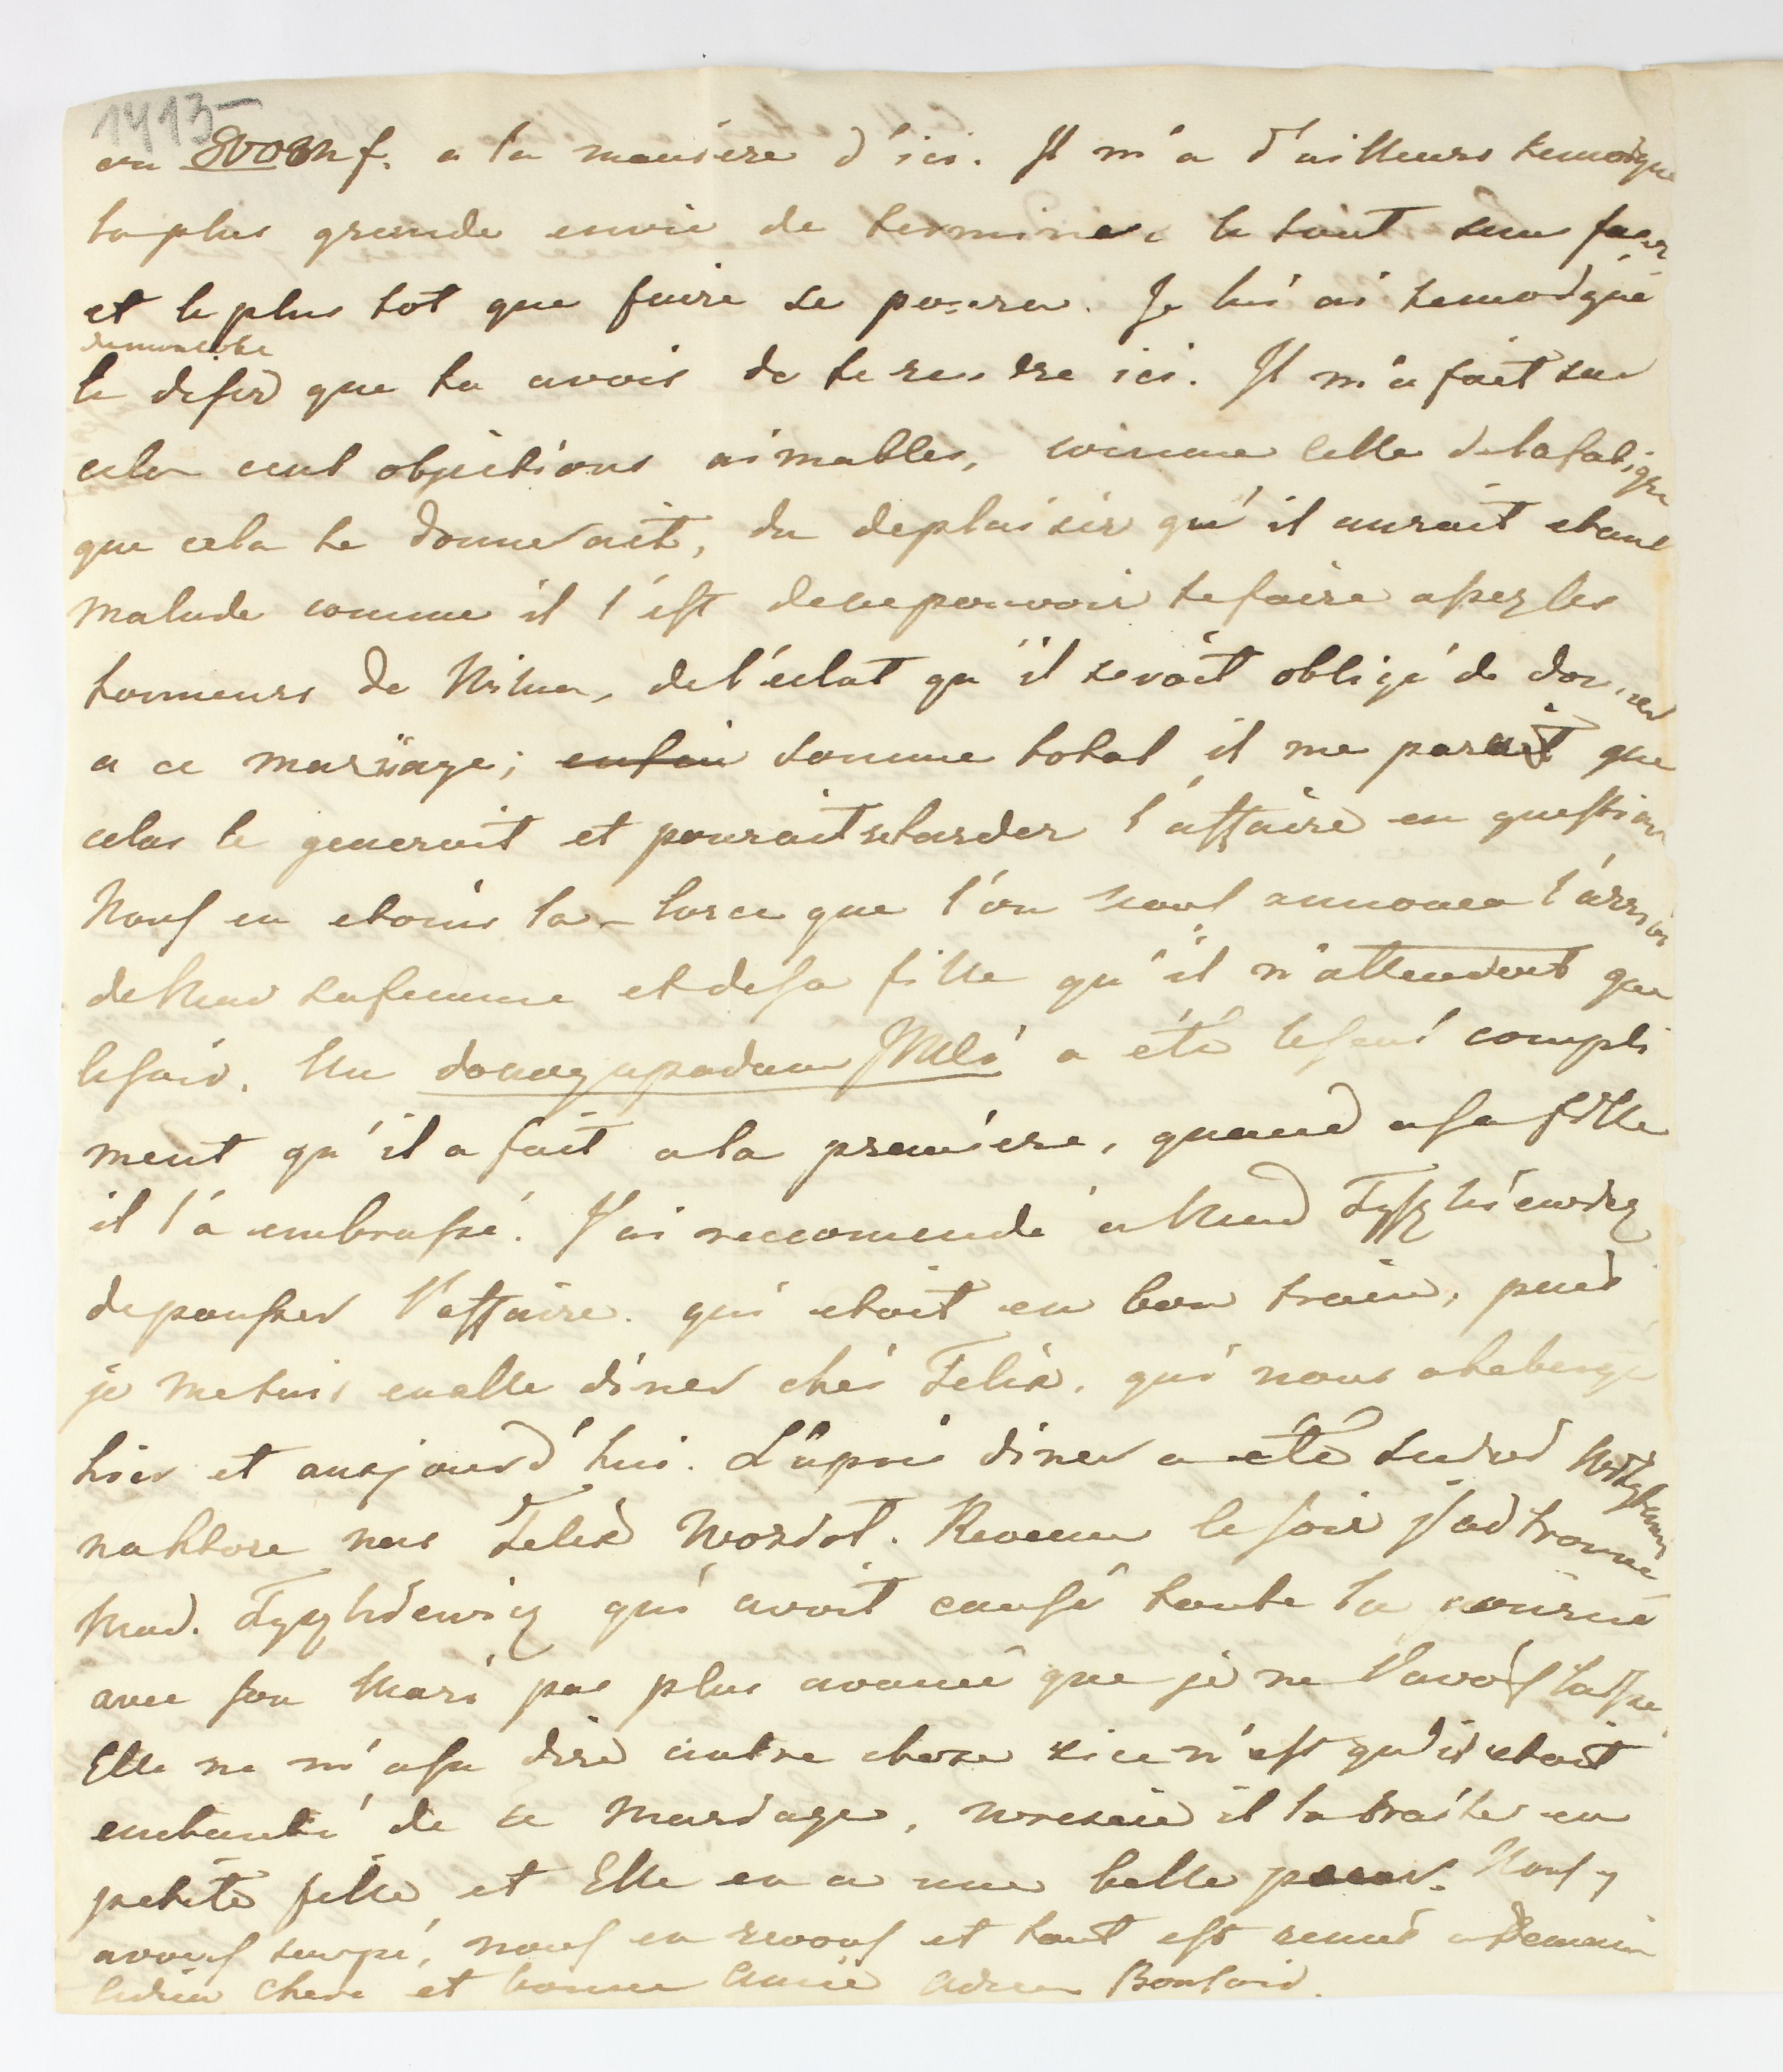 1413
en f. a la maniere d'ici. Il m'a d'ailleurs temoigné
la plus grande envie de terminer le tout sans façon
et le plus tot que faire se pourra. Je lui ai temoigné
le desir que tu avois de te rendre ici. Il m'a fait sur
cela cent objections aimables, comme celle de la fatigue
que cela te donnerait, du deplaisir qu'il aurait etant
Malade comme il l'est de ne pouvoir te faire assez les
honneurs de Wilna, de l'eclat qu'il seroit obligé de donner
a ce mariiage; enfin somme total il me parait que
celas le generoit et pourait retarder l'affaire en question
Nous en etoins la lorsce que l'on nous annonca l'arrivé
de Mad sa femme et de sa fille qu'il n'attendoit que
le soir. Un a été le seul compli
ment qu'il a fait a la premiere, quand a sa fille
il l'a embrassé. J'ai reccomendé a Mad Tyszkiewicz
de pousser l'affaire. qui etoit en bon train, puis
je me suis en allé diner chés Felix. qui nous a heberge
hier et ausjourd'hui. L'apres diner a été
Felix Revenu le soir j'ai trouvé
Mad. Tyszkiewicz qui avoit causé toute la journé
avec son Mari pas plus avancé que je ne l'avois laissé.
Elle ne m'a su dire autre chose si ce n'est qu'il etoit
enchanté de ce Mariage, il la traite en
petite fille et Elle en a une belle peur. Nous y
avons soupé, nous en revons et tout est remis a Demain
Adieu Chere et bonne Amie Adieu Bonsoir.